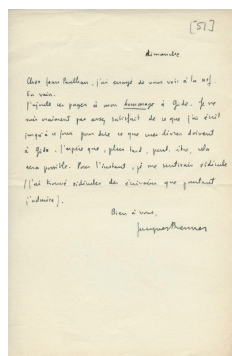 [51]
dimanche
Cher Jean Paulhan, j'ai essayé de vous voir à la nrf.
En vain.
J'ajoute ces pages à mon hommage à Gide. Je ne
suis vraiment pas assez satisfait de ce que j'ai écrit
jusqu'à ce jour pour dire ce que mes livres doivent
à Gide. J'espère que, plus tard, peut-être, cela
sera possible. Pour l'instant, je me sentirais ridicule
(j'ai trouvé ridicules des écrivains que pourtant
j'admire).
Bien à vous,
Jacques Brenner